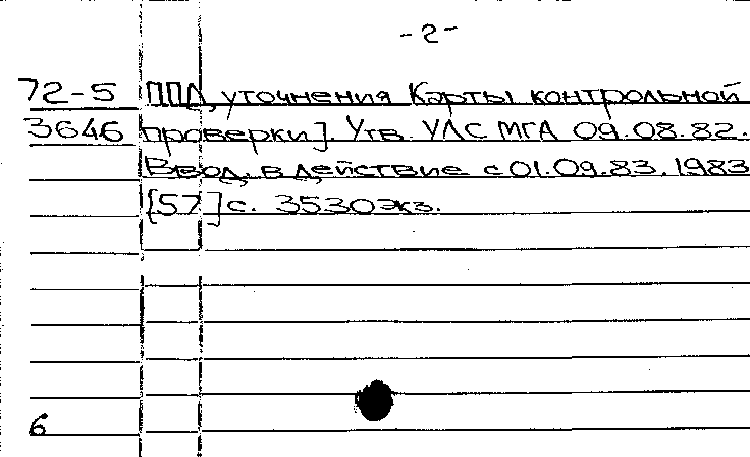 -2-
72-5 ППЛ, уточнения Карты контрольной
3646 проверки]. Утв. УЛС МГА 09.08.82.
Ввод. в действие с 01.09.83. 1983
[57] с. 3530 экз.
6